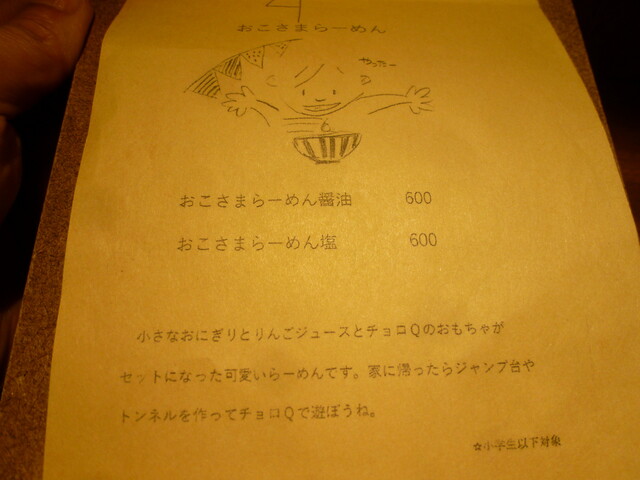 おこさまらーめん
やったー
おこさまらーめん醤油 600
おこさまらーめん塩 600
小さなおにぎりとりんごジュースとチョロQのおもちゃが
セットになった可愛いらーめんです。家に帰ったらジャンプ台や
トンネルを作ってチョロQで遊ぼうね。
☆小学生以下対象